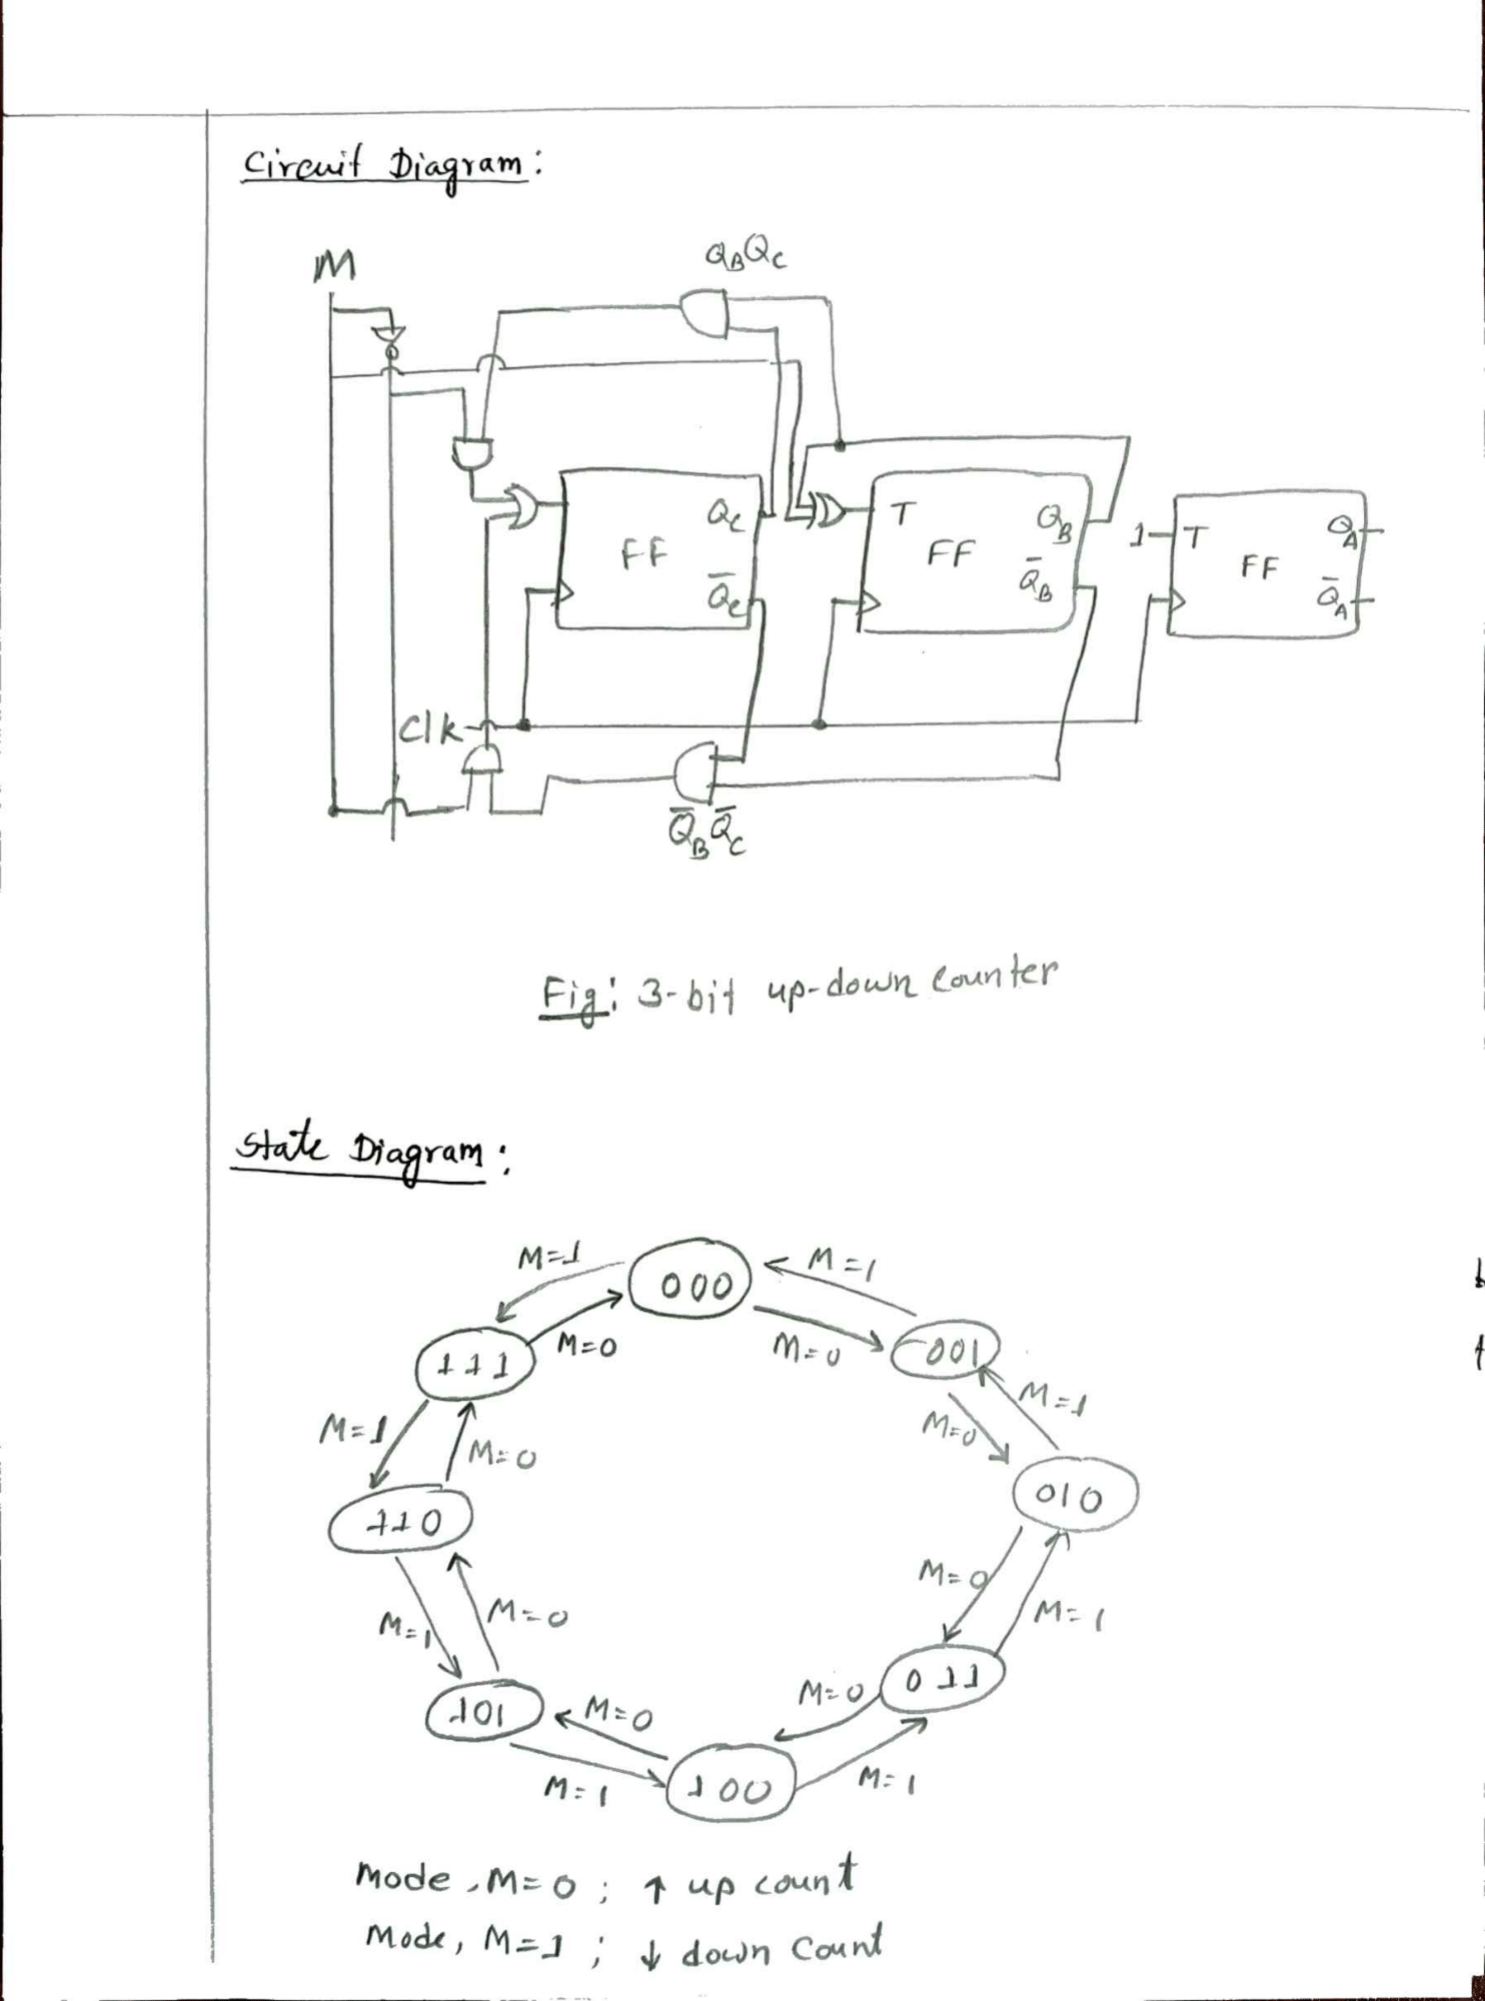 Circuit Diagram:
M
Q_B Q_C
Q_C
T
Q_B
1
T
Q_A
FF
FF
FF
Q̅_C
Q̅_B
Q̅_A
Clk
Q̅_B Q̅_C
Fig: 3-bit up-down Counter
State Diagram:
M=1
000
M=1
M=0
M=0
111
001
M=1
M=0
M=0
M=1
110
010
M=1
M=0
M=0
M=1
101
M=0
M=0
011
M=1
100
M=1
Mode, M=0 ; ↑ up count
Mode, M=1 ; ↓ down Count